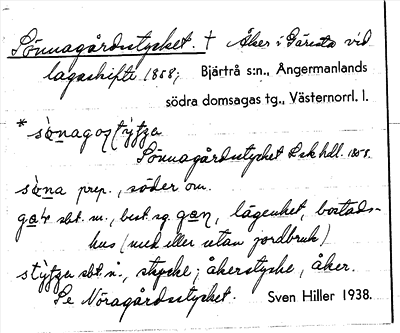 Sönnagårdsstycket. † Åker i Gårsta vid
lagaskifte 1858; Bjärtrå s:n., Ångermanlands
södra domsagas tg., Västernorrl. l.
Sönnagårdsstycket Lsk hdl. 1858.
prep., söder om.
sbt. n., best. sg. lägenhet, bostads-
hus (med eller utan jordbruk)
sbt. n., stycke; åkerstycke, åker.
Se Nöragårdsstycket. Sven Hiller 1938.